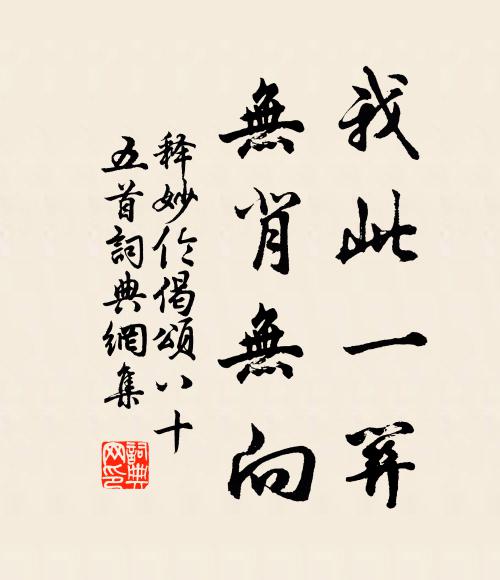 我此一
無背無向
释妙伦偈頌八十
五首詞典網集
詞典网印